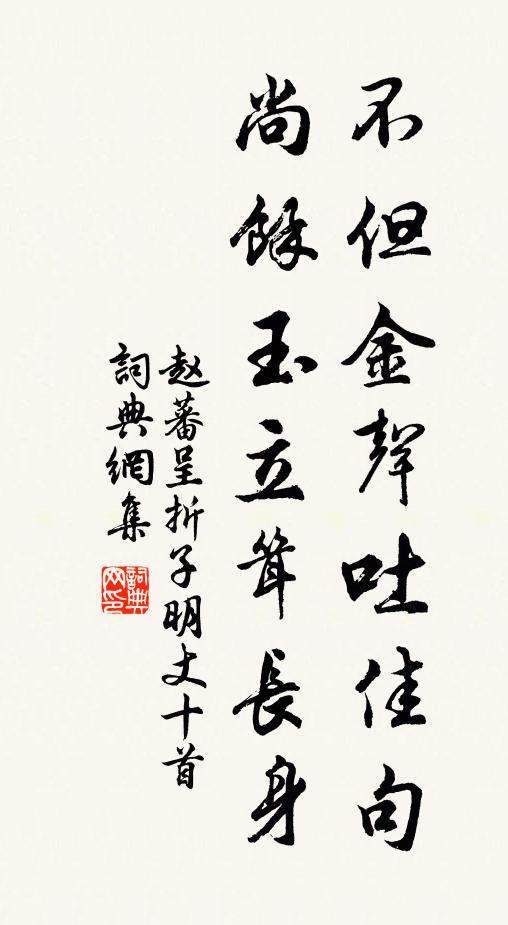 不但金聲吐佳句
尚餘玉立聳長身
赵蕃呈折子明丈十首
詞典網集
詞典網印